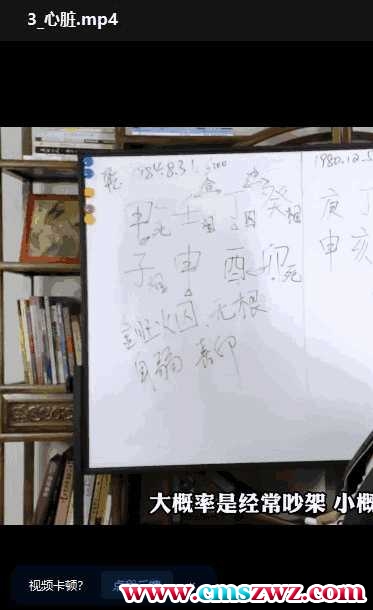 3_心脏.mp4
乾 1984.8.31
甲 壬 丁 癸
子 申 酉 卯
金旺火囚、无根
身弱 喜印
1980.12.5
庚 丁
申 亥
大概率是经常吵架 小概
视频卡顿?
www.cmszwz.com